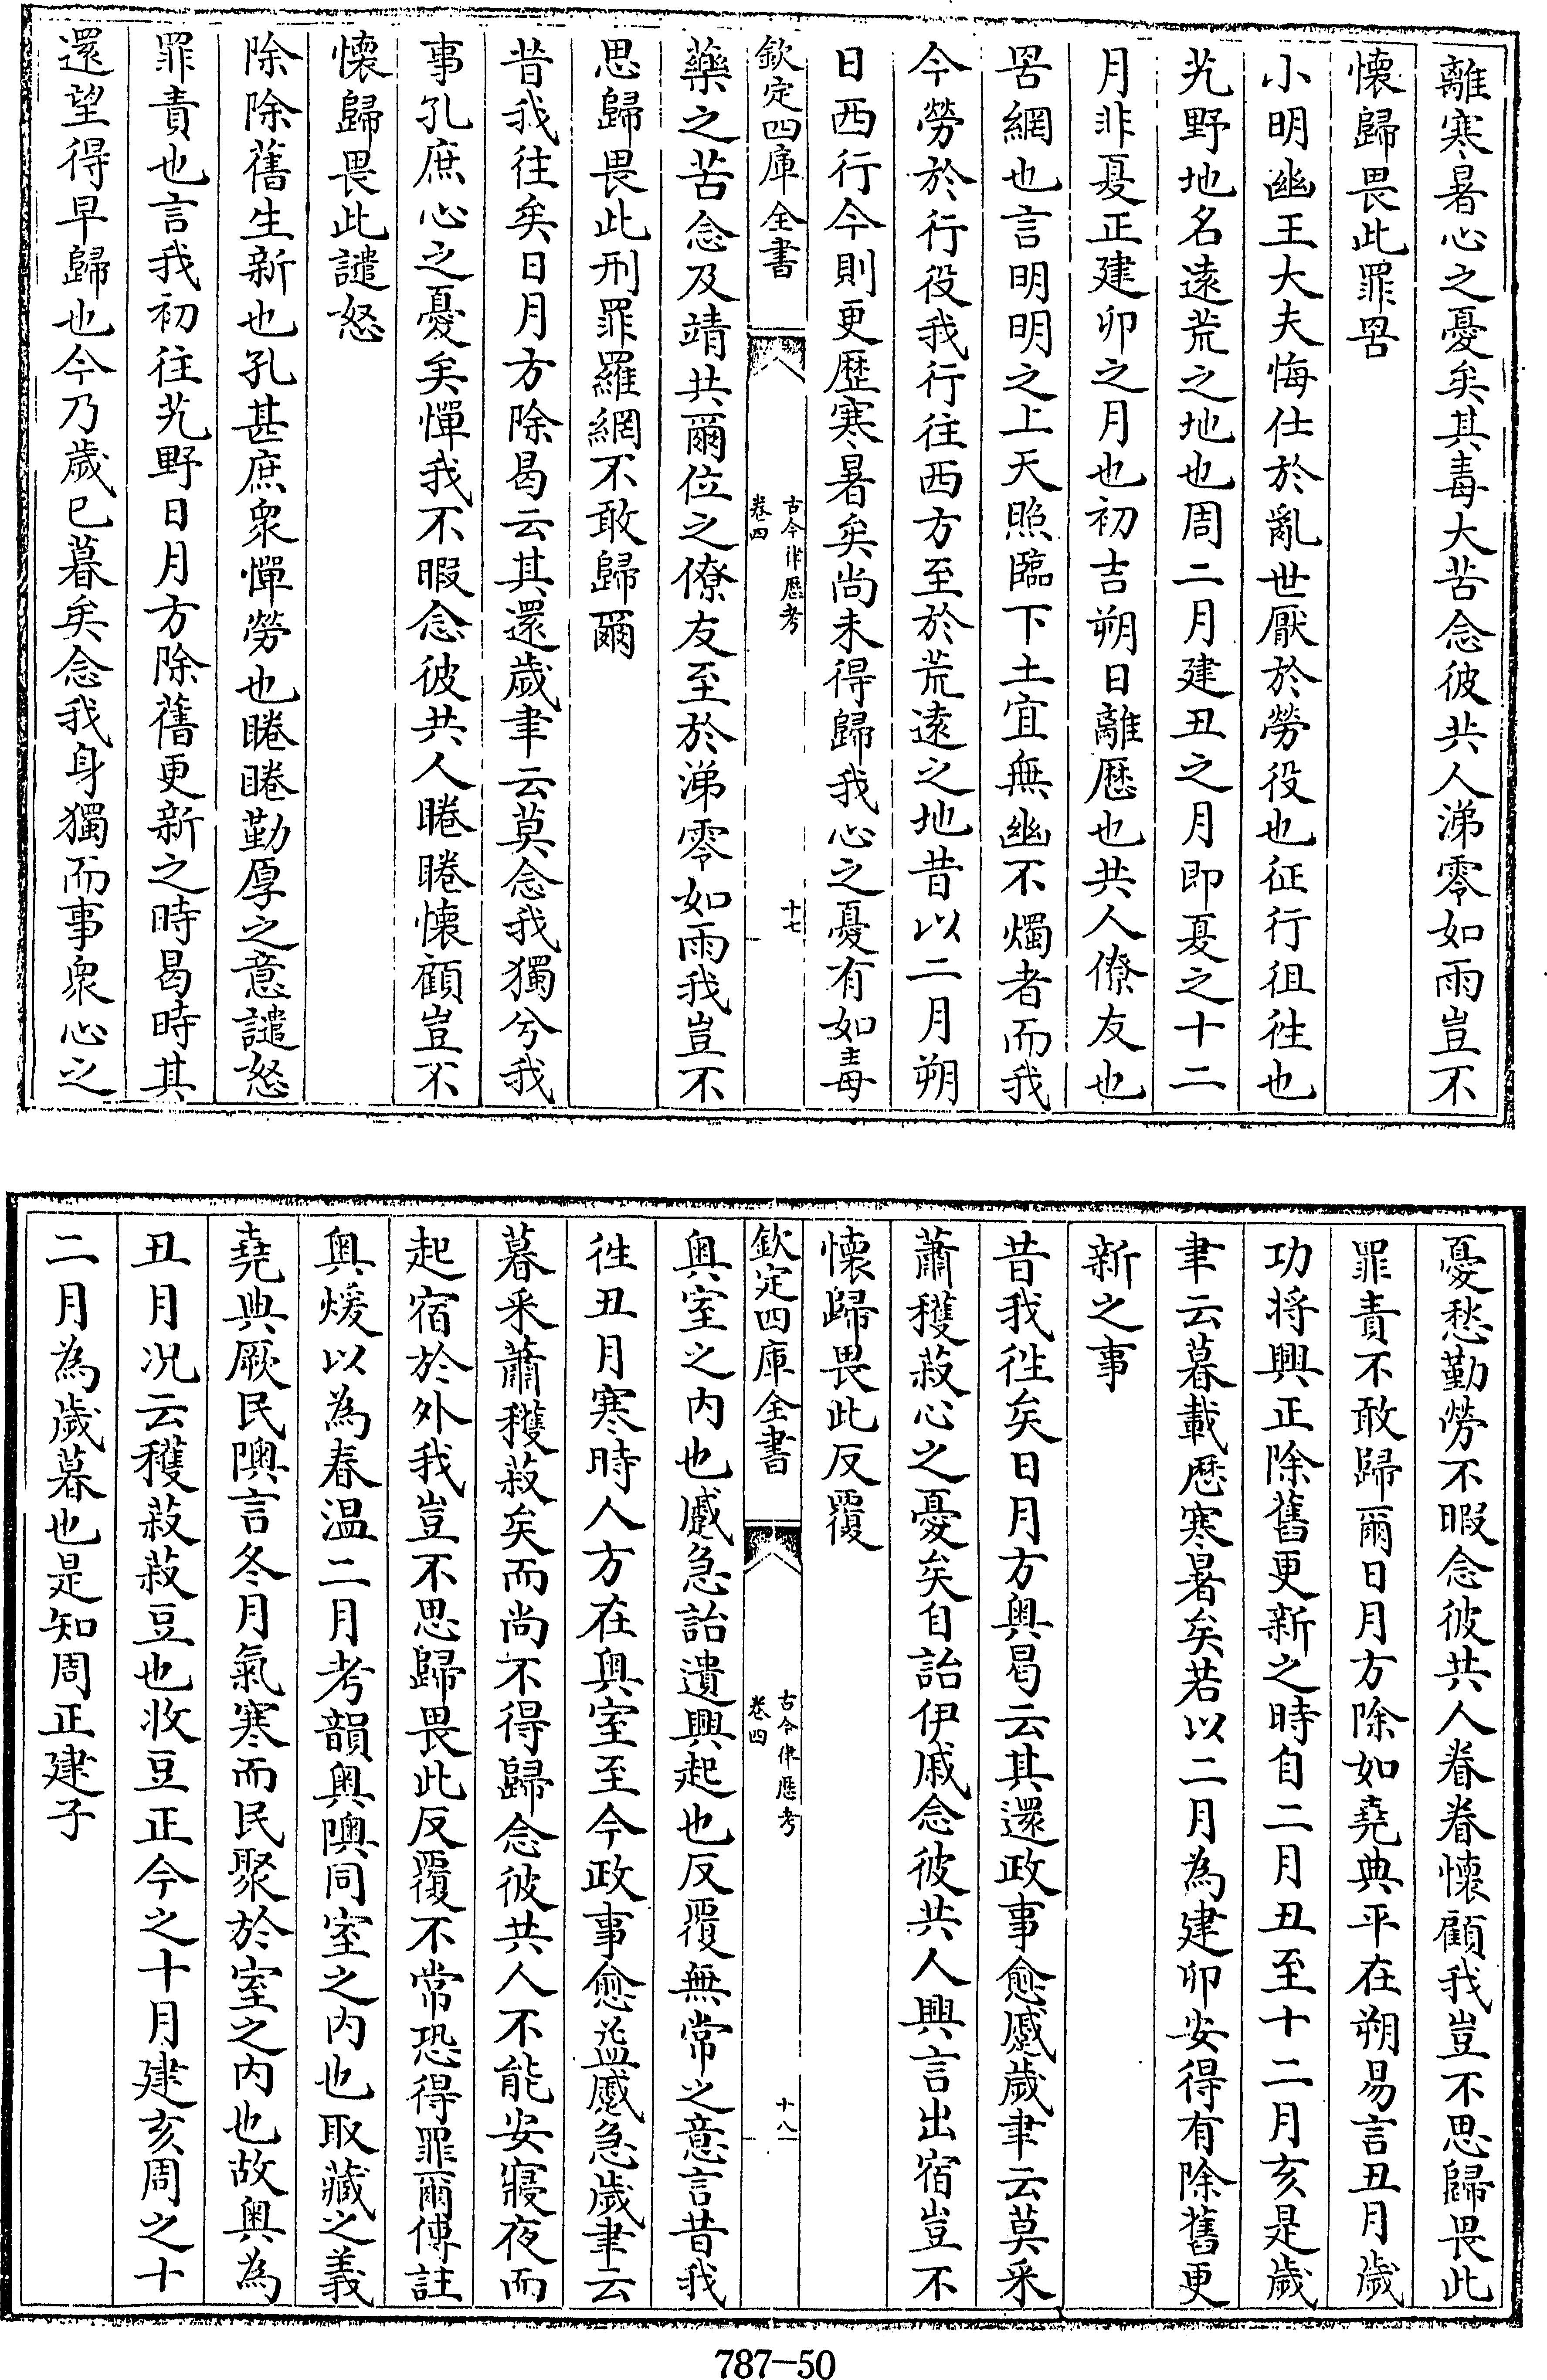 離寒暑心之憂矣其毒大苦念彼共人涕零如雨豈不
懷歸畏此罪罟
小明幽王大夫悔仕於亂世厭於勞役也征行徂徃也
艽野地名逺荒之地也周二月建丑之月即夏之十二
月非夏正建卯之月也初吉朔日離歴也共人僚友也
罟網也言明明之上天照臨下土宜無幽不燭者而我
今勞於行役我行往西方至於荒逺之地昔以二月朔
日西行今則更歴寒暑矣尚未得歸我心之憂有如毒
欽定四庫全書
古今律厯考
卷四
十七
藥之苦念及靖共爾位之僚友至於涕零如雨我豈不
思歸畏此刑罪羅網不敢歸爾
昔我往矣日月方除曷云其還歲聿云莫念我獨兮我
事孔庶心之憂矣憚我不暇念彼共人睠睠懷顧豈不
懷歸畏此譴怒
除除舊生新也孔甚庶衆憚勞也睠睠勤厚之意譴怒
罪責也言我初往艽野日月方除舊更新之時曷時其
還望得早歸也今乃歲已暮矣念我身獨而事衆心之
憂愁勤勞不暇念彼共人眷眷懷顧我豈不思歸畏此
罪責不敢歸爾日月方除如堯典平在朔易言丑月歲
功将興正除舊更新之時自二月丑至十二月亥是歲
聿云暮載厯寒暑矣若以二月為建卯安得有除舊更
新之事
昔我徃矣日月方奥曷云其還政事愈蹙歲聿云莫采
蕭穫菽心之憂矣自詒伊戚念彼共人興言出宿豈不
懷歸畏此反覆
欽定四庫全書
古今律厯考
卷四
十八
奥室之内也蹙急詒遺興起也反覆無常之意言昔我
徃丑月寒時人方在奥室至今政事愈益蹙急歲聿云
暮采蕭穫菽矣而尚不得歸念彼共人不能安寢夜而
起宿於外我豈不思歸畏此反覆不常恐得罪爾傅註
奥煖以為春温二月考韻奥隩同室之内也取藏之義
堯典厥民隩言冬月氣寒而民聚於室之内也故奥為
丑月况云穫菽菽豆也收豆正今之十月建亥周之十
二月為歲暮也是知周正建子
787-50